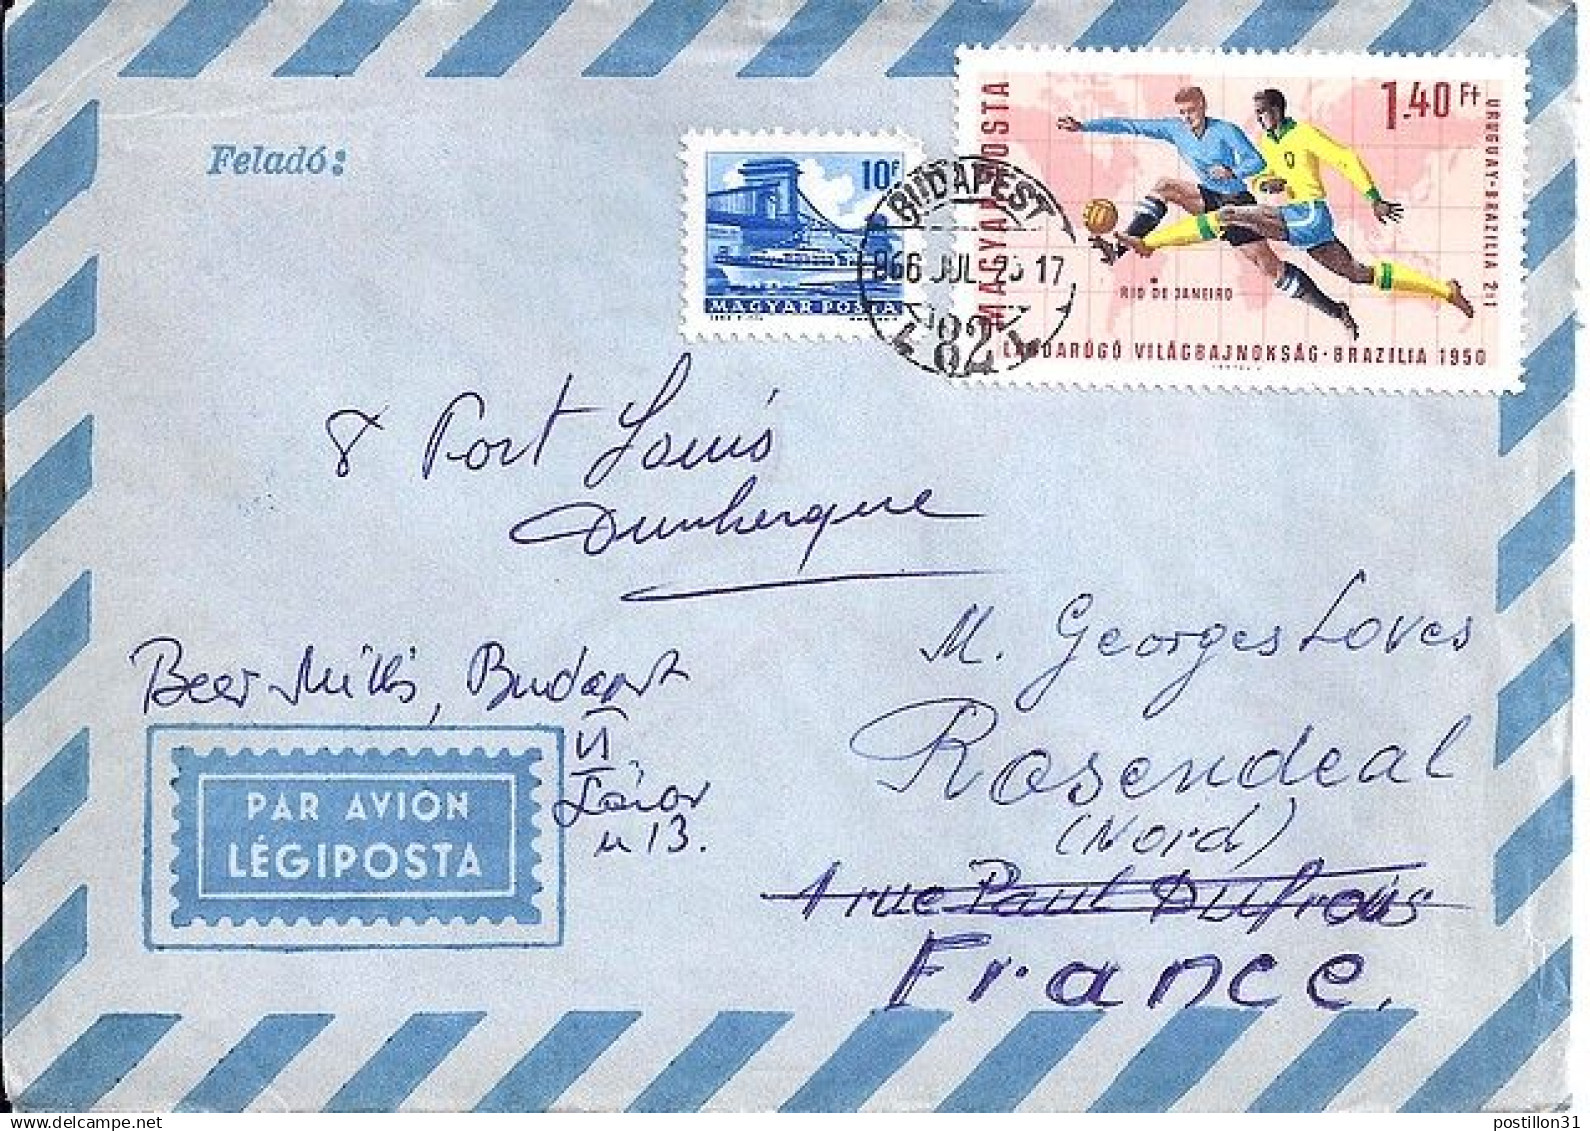 Feladó:
10f
MAGYAR POSTA
BUDAPEST
966 JUL. 25 17
82
MAGYAR POSTA
1.40 Ft
URUGUAY-BRAZILIA 2:1
RIO DE JANEIRO
LABDARÚGÓ VILÁGBAJNOKSÁG · BRAZILIA 1950
8 Port Louis
Dunkerque
M. Georges Loves
Beer Budapest
Rosendeal
(Nord)
u 13.
1 rue Paul Dufrois
France.
PAR AVION
LÉGIPOSTA
postillon31